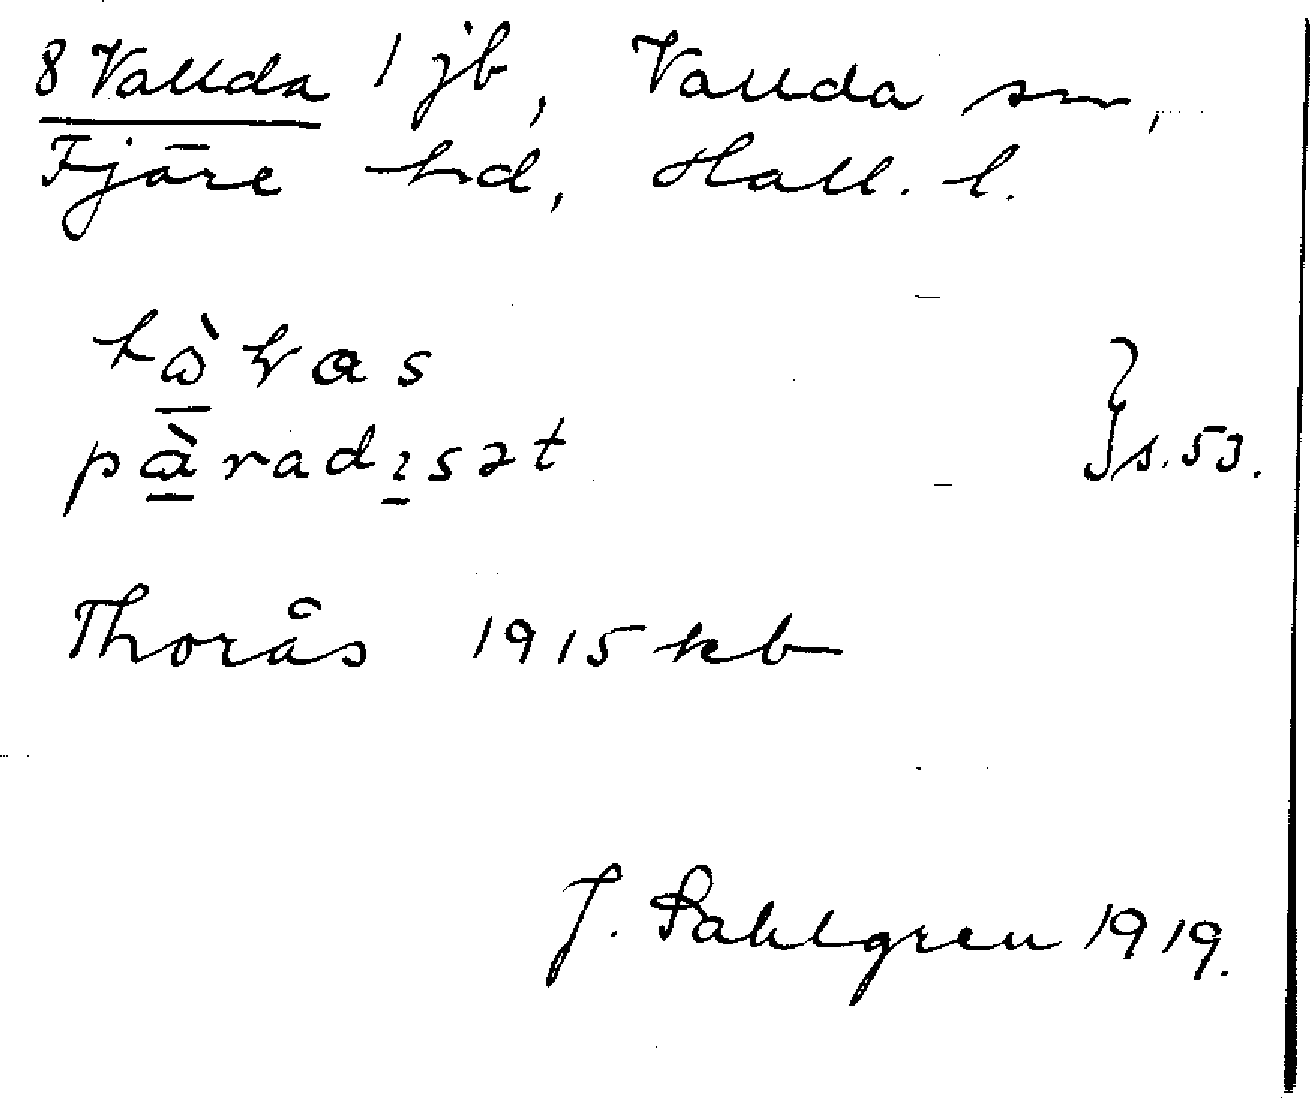 8 Vallda 1 jb, Vallda sn,
Fjäre hd, Hall. l.
hàkas
pàradisət } s. 53.
Thorås 1915 kb
J. Sahlgren 1919.